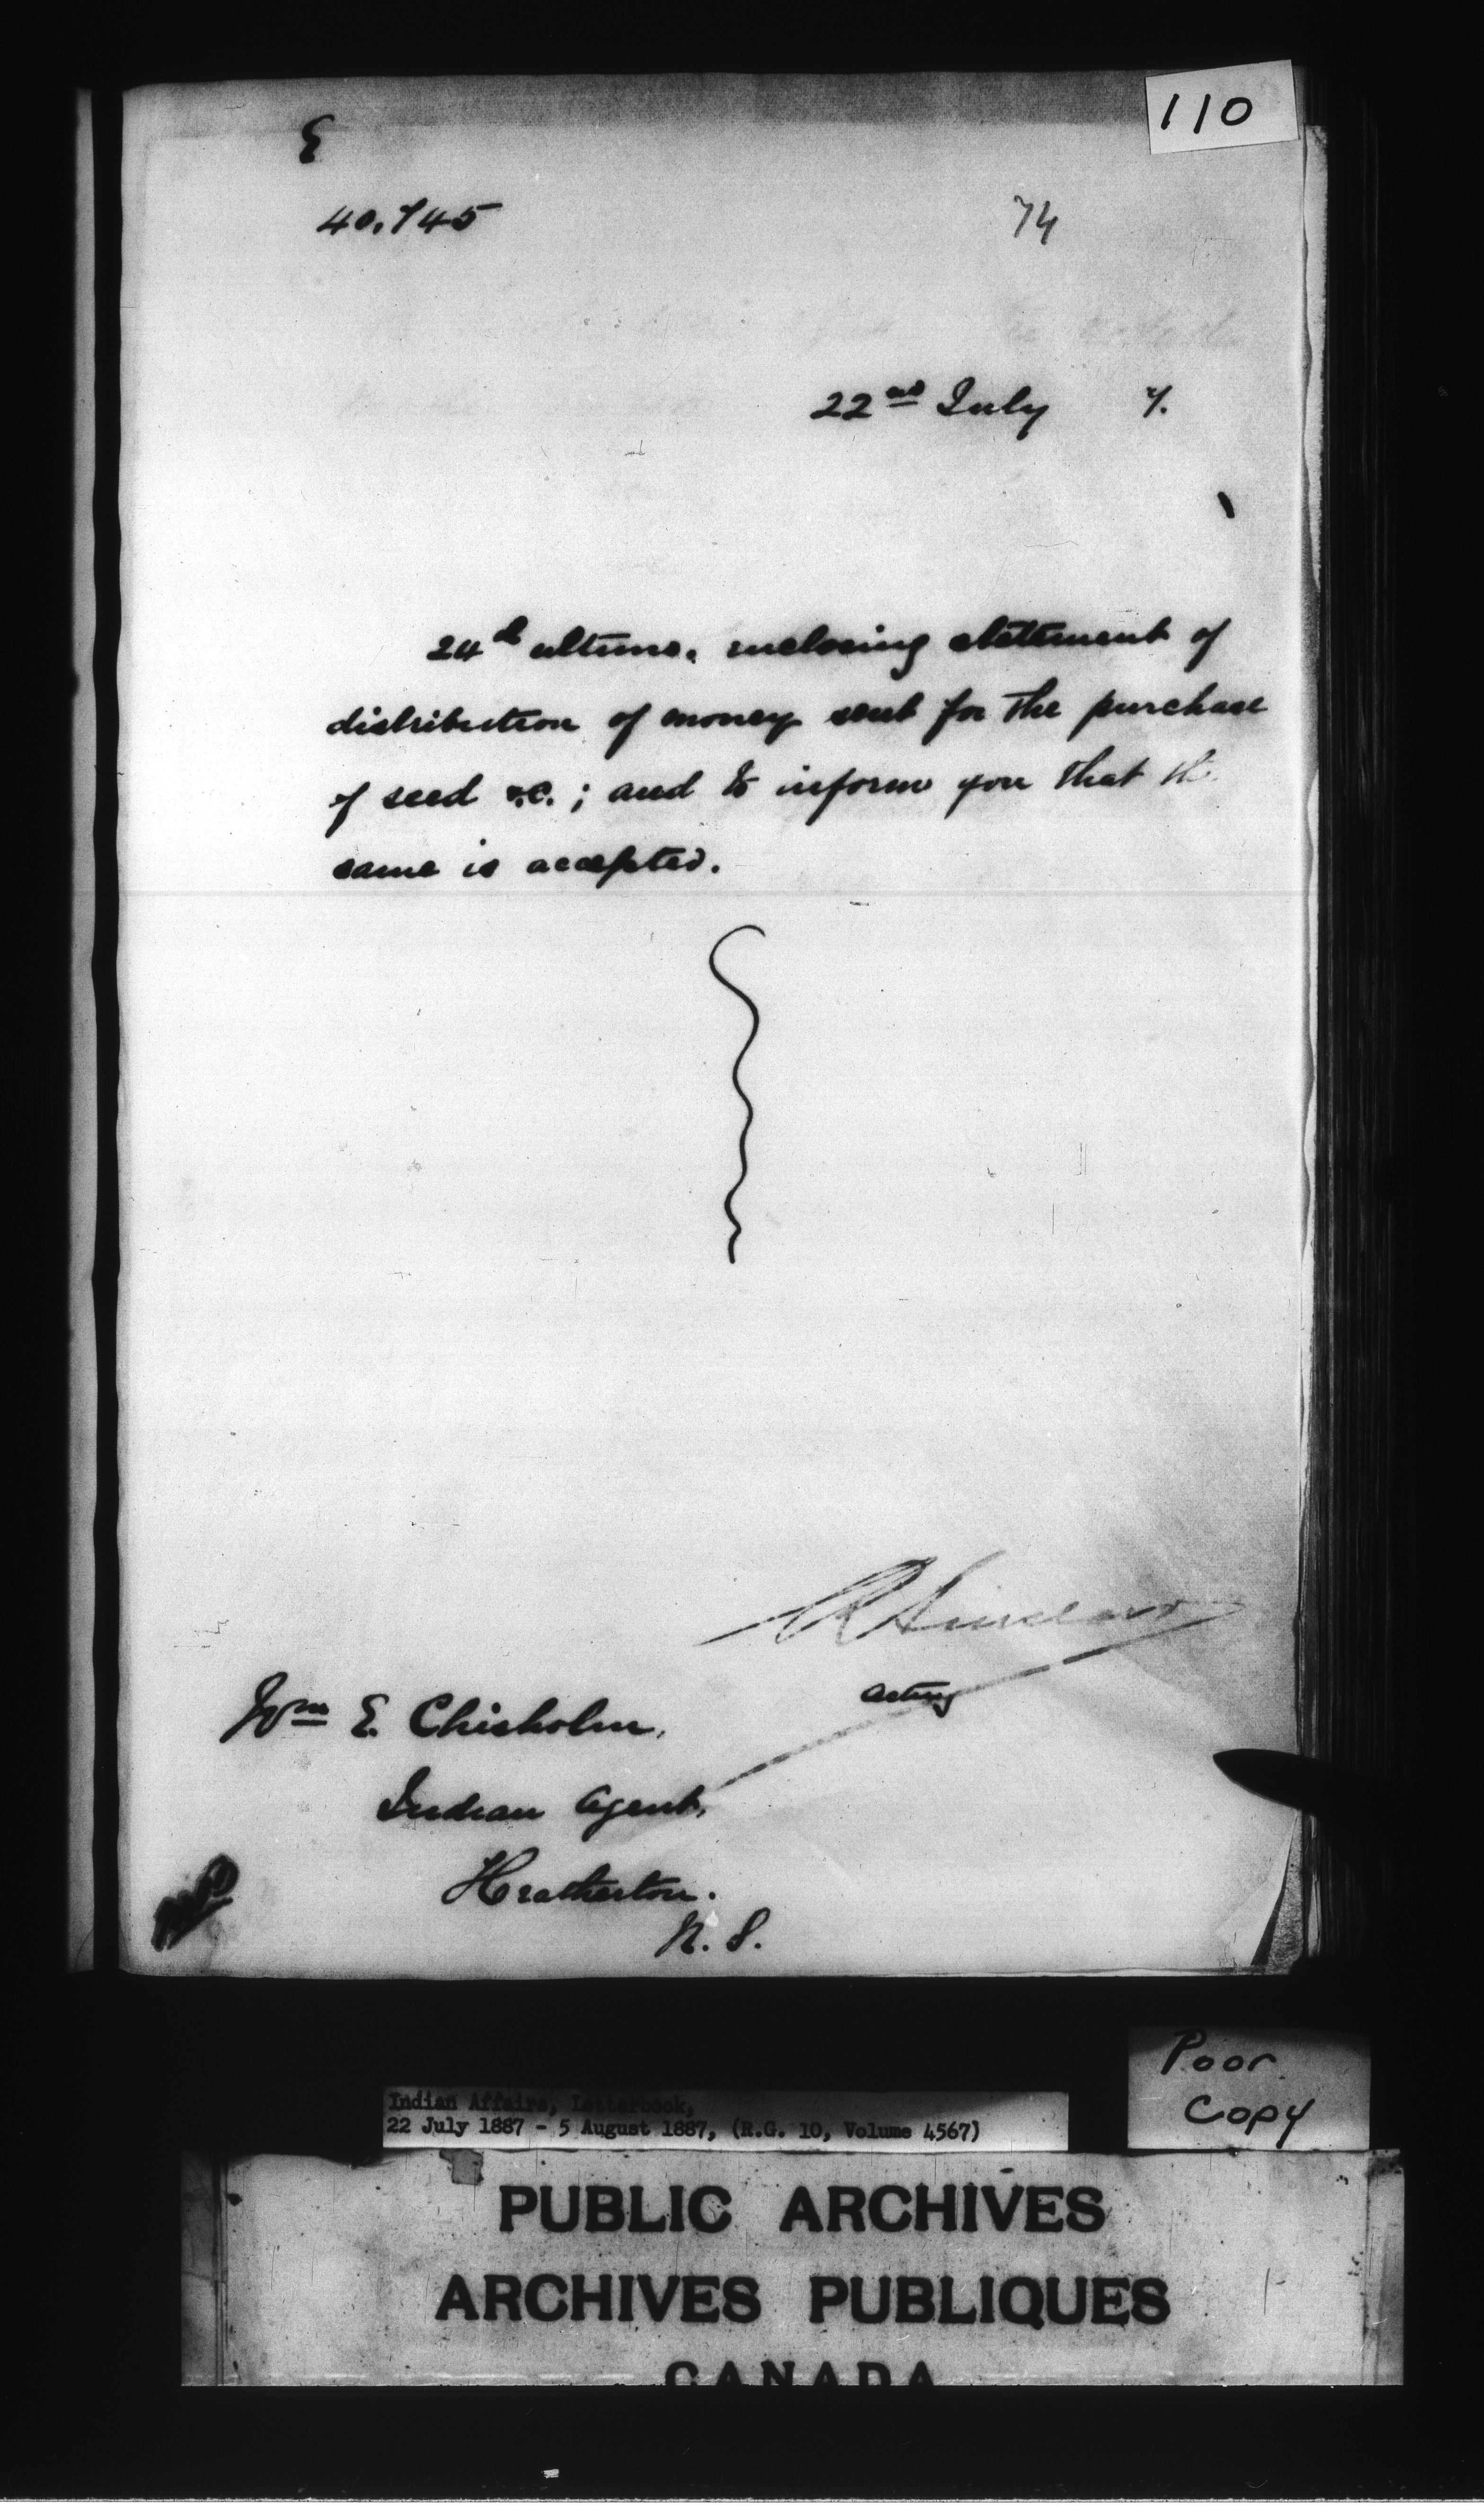 110
E
40.745
74
22nd July 7.
24th ultimo, enclosing statement of
distribution of money sent for the purchase
of seed &c.; and to inform you that the
same is accepted.
R Sinclair
acting
Wm E. Chisholm,
Indian Agent,
Heatherton.
N. S.
Poor
Copy
Indian Affairs, Letterbook,
22 July 1887 - 5 August 1887, (R.G. 10, Volume 4567)
PUBLIC ARCHIVES
ARCHIVES PUBLIQUES
CANADA